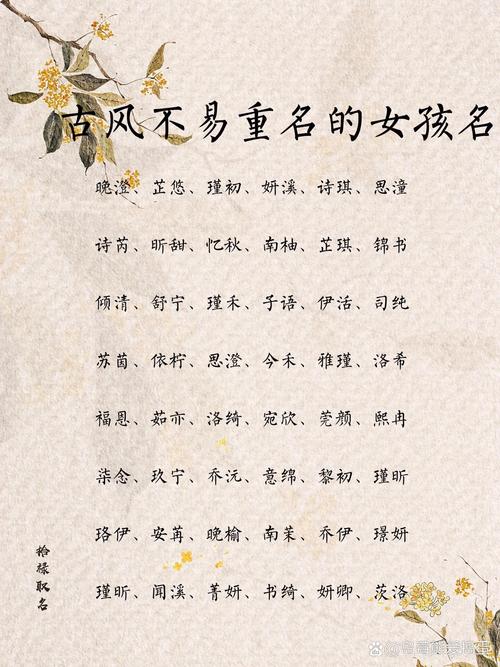 古风不易重名的女孩名
晚澄、芷悠、瑾初、妍溪、诗琪、思潼
诗芮、昕甜、忆秋、南柚、芷琪、锦书
倾清、舒宁、瑾禾、子语、伊活、司纯
苏茵、依柠、思澄、今禾、雅瑾、洛希
福恩、茹亦、洛绮、宛欣、莞颜、熙冉
柒念、玖宁、乔沅、意绵、黎初、瑾昕
珞伊、安苒、晚榆、南茉、乔伊、璟妍
瑾昕、闻溪、菁妍、书绮、妍卿、茨洛
拾禄取名